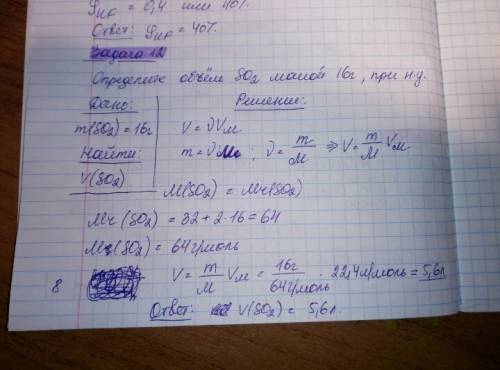 φHF = 0,4 или 40%.
Ответ: φHF = 40%.
Задача 12
Определите объём SO2 массой 16г, при н.у.
Дано: Решение:
m(SO2) = 16г V = νVм
Найти: m = νM; ν = m/M ⇒ V = m/M Vм
V(SO2) M(SO2) = Mч(SO2)
Mч(SO2) = 32 + 2·16 = 64
M(SO2) = 64г/моль
8 V = m/M Vм = 16г/64г/моль · 22,4л/моль = 5,6л
Ответ: V(SO2) = 5,6л.